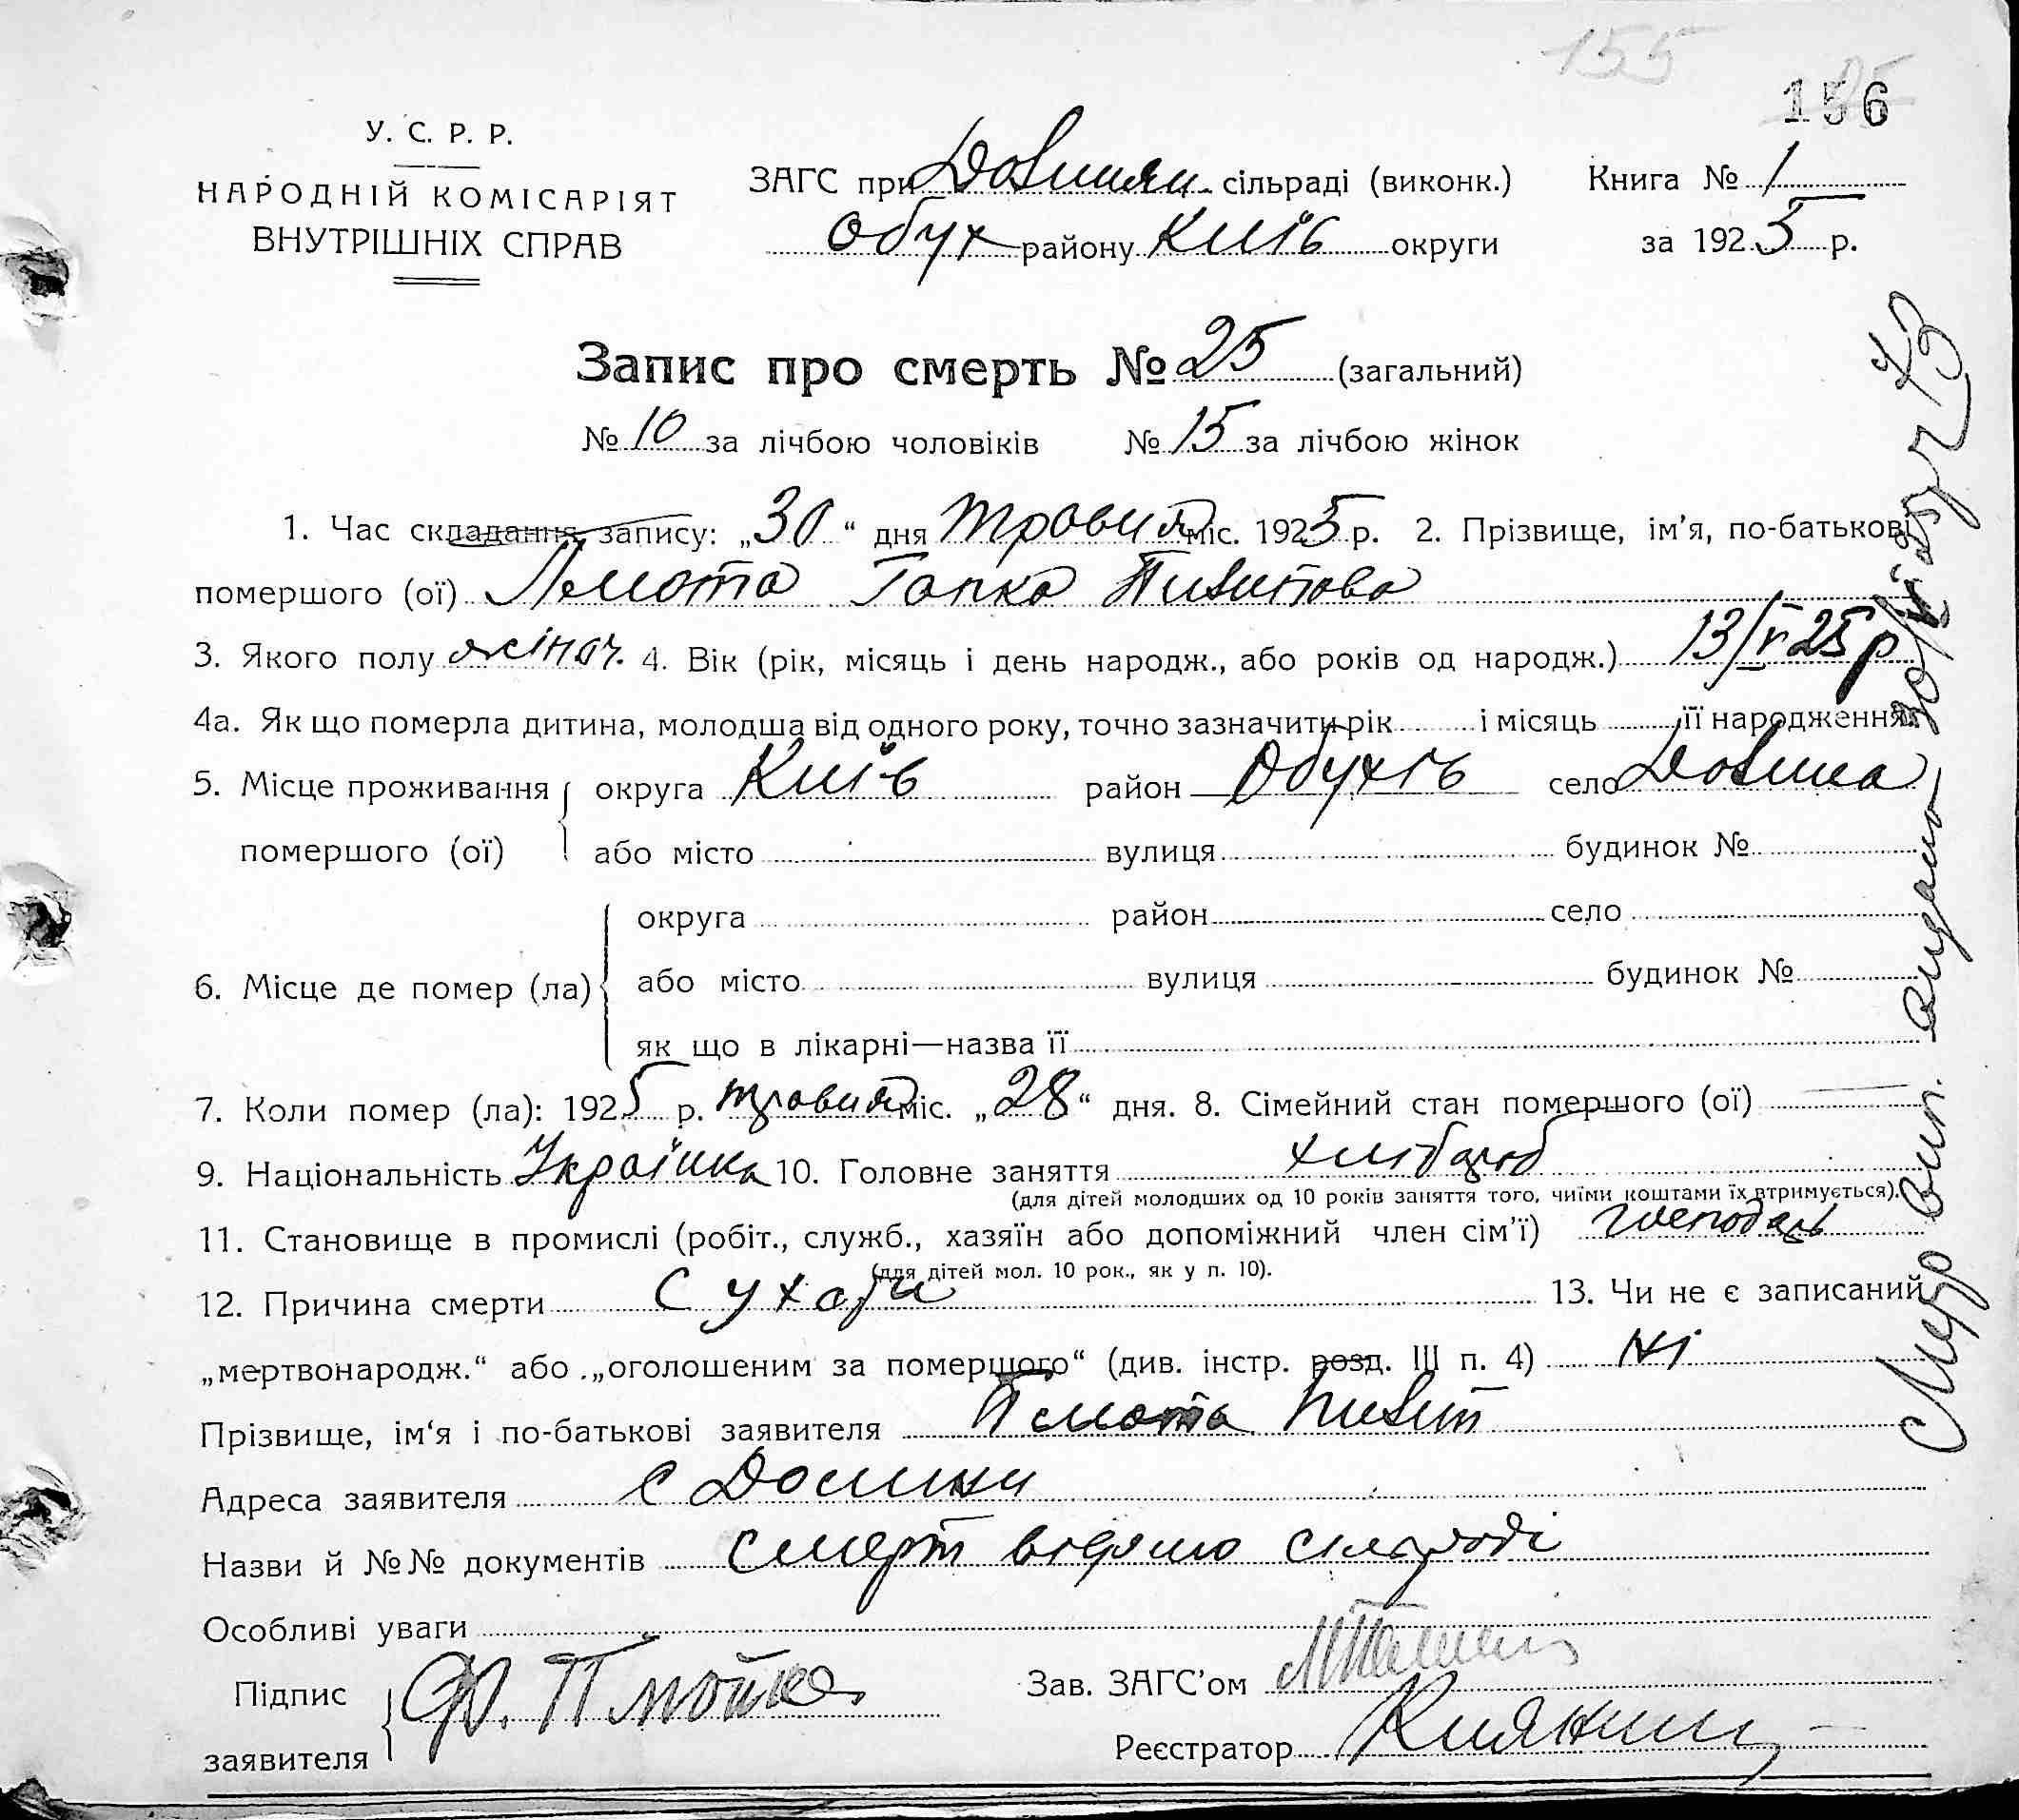 155
156
У. С. Р. Р.
НАРОДНІЙ КОМІСАРІЯТ
ВНУТРІШНІХ СПРАВ
ЗАГС при сільраді (виконк.) Книга № 1
Обух району Київ округи за 1925 р.
Запис про смерть № 25 (загальний)
№ 10 за лічбою чоловіків № 15 за лічбою жінок
1. Час складання запису: „30“ дня травня міс. 1925 р. 2. Прізвище, ім’я, по-батькові
помершого (ої) Гапка
3. Якого полу жіноч. 4. Вік (рік, місяць і день народж., або років од народж.) 13/V 25 р
4а. Як що померла дитина, молодша від одного року, точно зазначити рік і місяць її народження
5. Місце проживання округа Київ район Обухів село
помершого (ої) або місто вулиця будинок №
округа район село
6. Місце де помер (ла) або місто вулиця будинок №
як що в лікарні—назва її
7. Коли помер (ла): 1925 р. травня міс. „28“ дня. 8. Сімейний стан помершого (ої)
9. Національність Українка 10. Головне заняття хлібороб
(для дітей молодших од 10 років заняття того, чиїми коштами їх втримується).
11. Становище в промислі (робіт., служб., хазяїн або допоміжний член сім’ї) господарь
(для дітей мол. 10 рок., як у п. 10).
12. Причина смерти Сухоти 13. Чи не є записаний
„мертвонародж.“ або „оголошеним за померщого“ (див. інстр. розд. III п. 4) ні
Прізвище, ім‘я і по-батькові заявителя
Адреса заявителя с Долини
Назви й №№ документів смерт відомо сільраді
Особливі уваги
Підпис
заявителя
Зав. ЗАГС’ом
Реєстратор